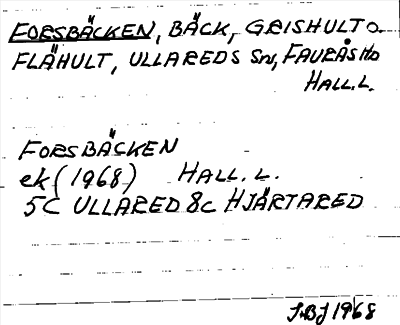 FORSBÄCKEN, BÄCK, GRISHULT O.
FLÄHULT, ULLAREDS SN, FAURÅS HD
HALL.L.
FORSBÄCKEN
ek (1968) HALL.L.
5C ULLARED 8C HJÄRTARED
J.BJ 1968